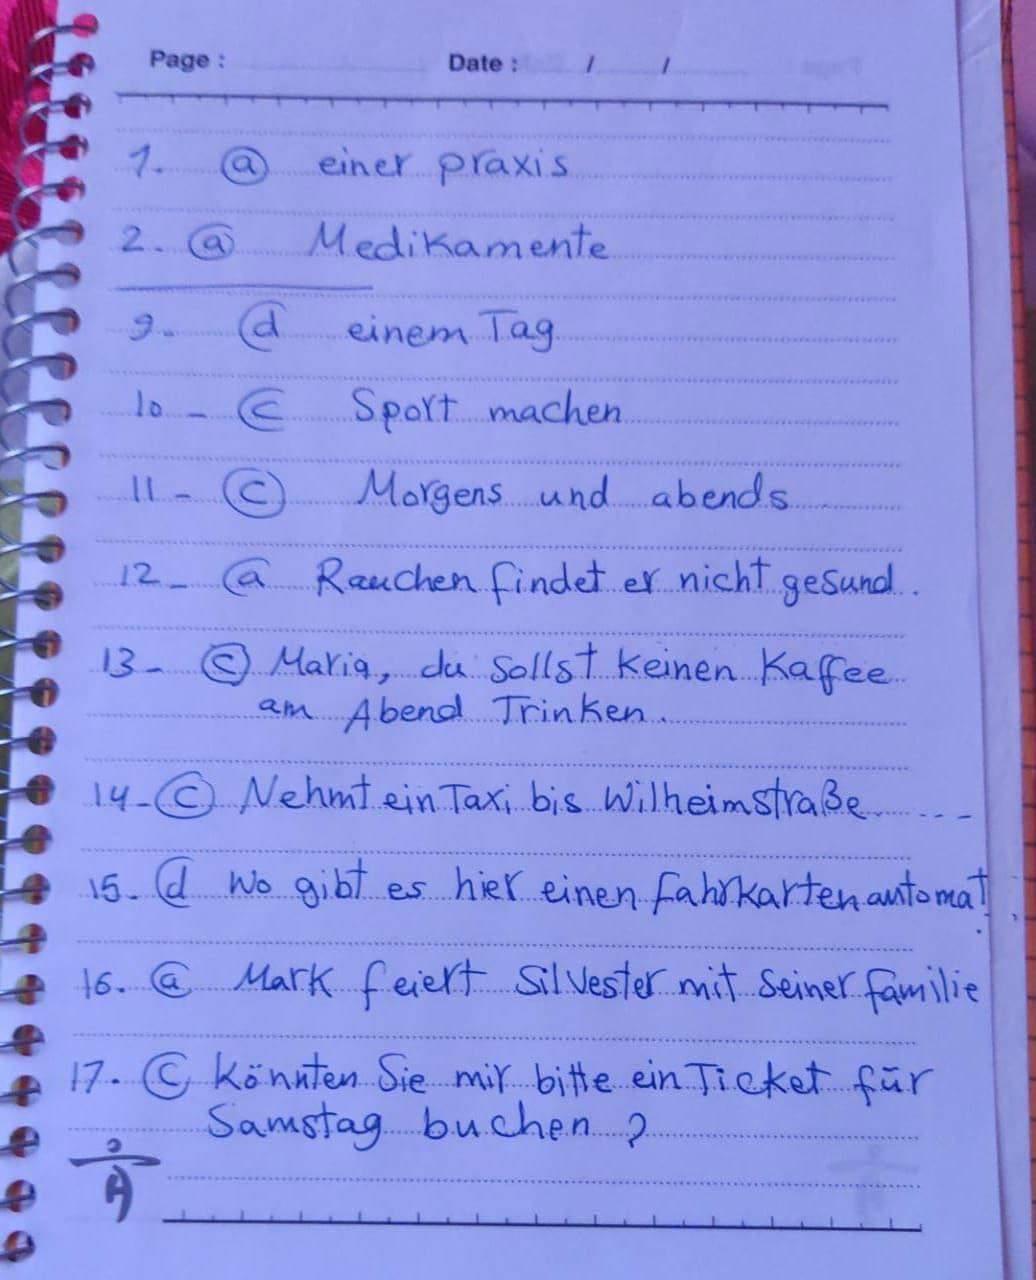 Page : Date : / /
1. ⓐ einer praxis
2. ⓐ Medikamente
9. ⓓ einem Tag
10 - ⓒ Sport machen
11 - ⓒ Morgens und abends
12 - ⓐ Rauchen findet er nicht gesund.
13 - ⓒ Maria, du sollst keinen Kaffee
am Abend Trinken.
14 - ⓒ Nehmt ein Taxi bis Wilheimstraße ...
15. ⓓ Wo gibt es hier einen Fahrkartenautomat
16. ⓐ Mark feiert Silvester mit Seiner familie
17. ⓒ Könnten Sie mir bitte ein Ticket für
Samstag buchen ?